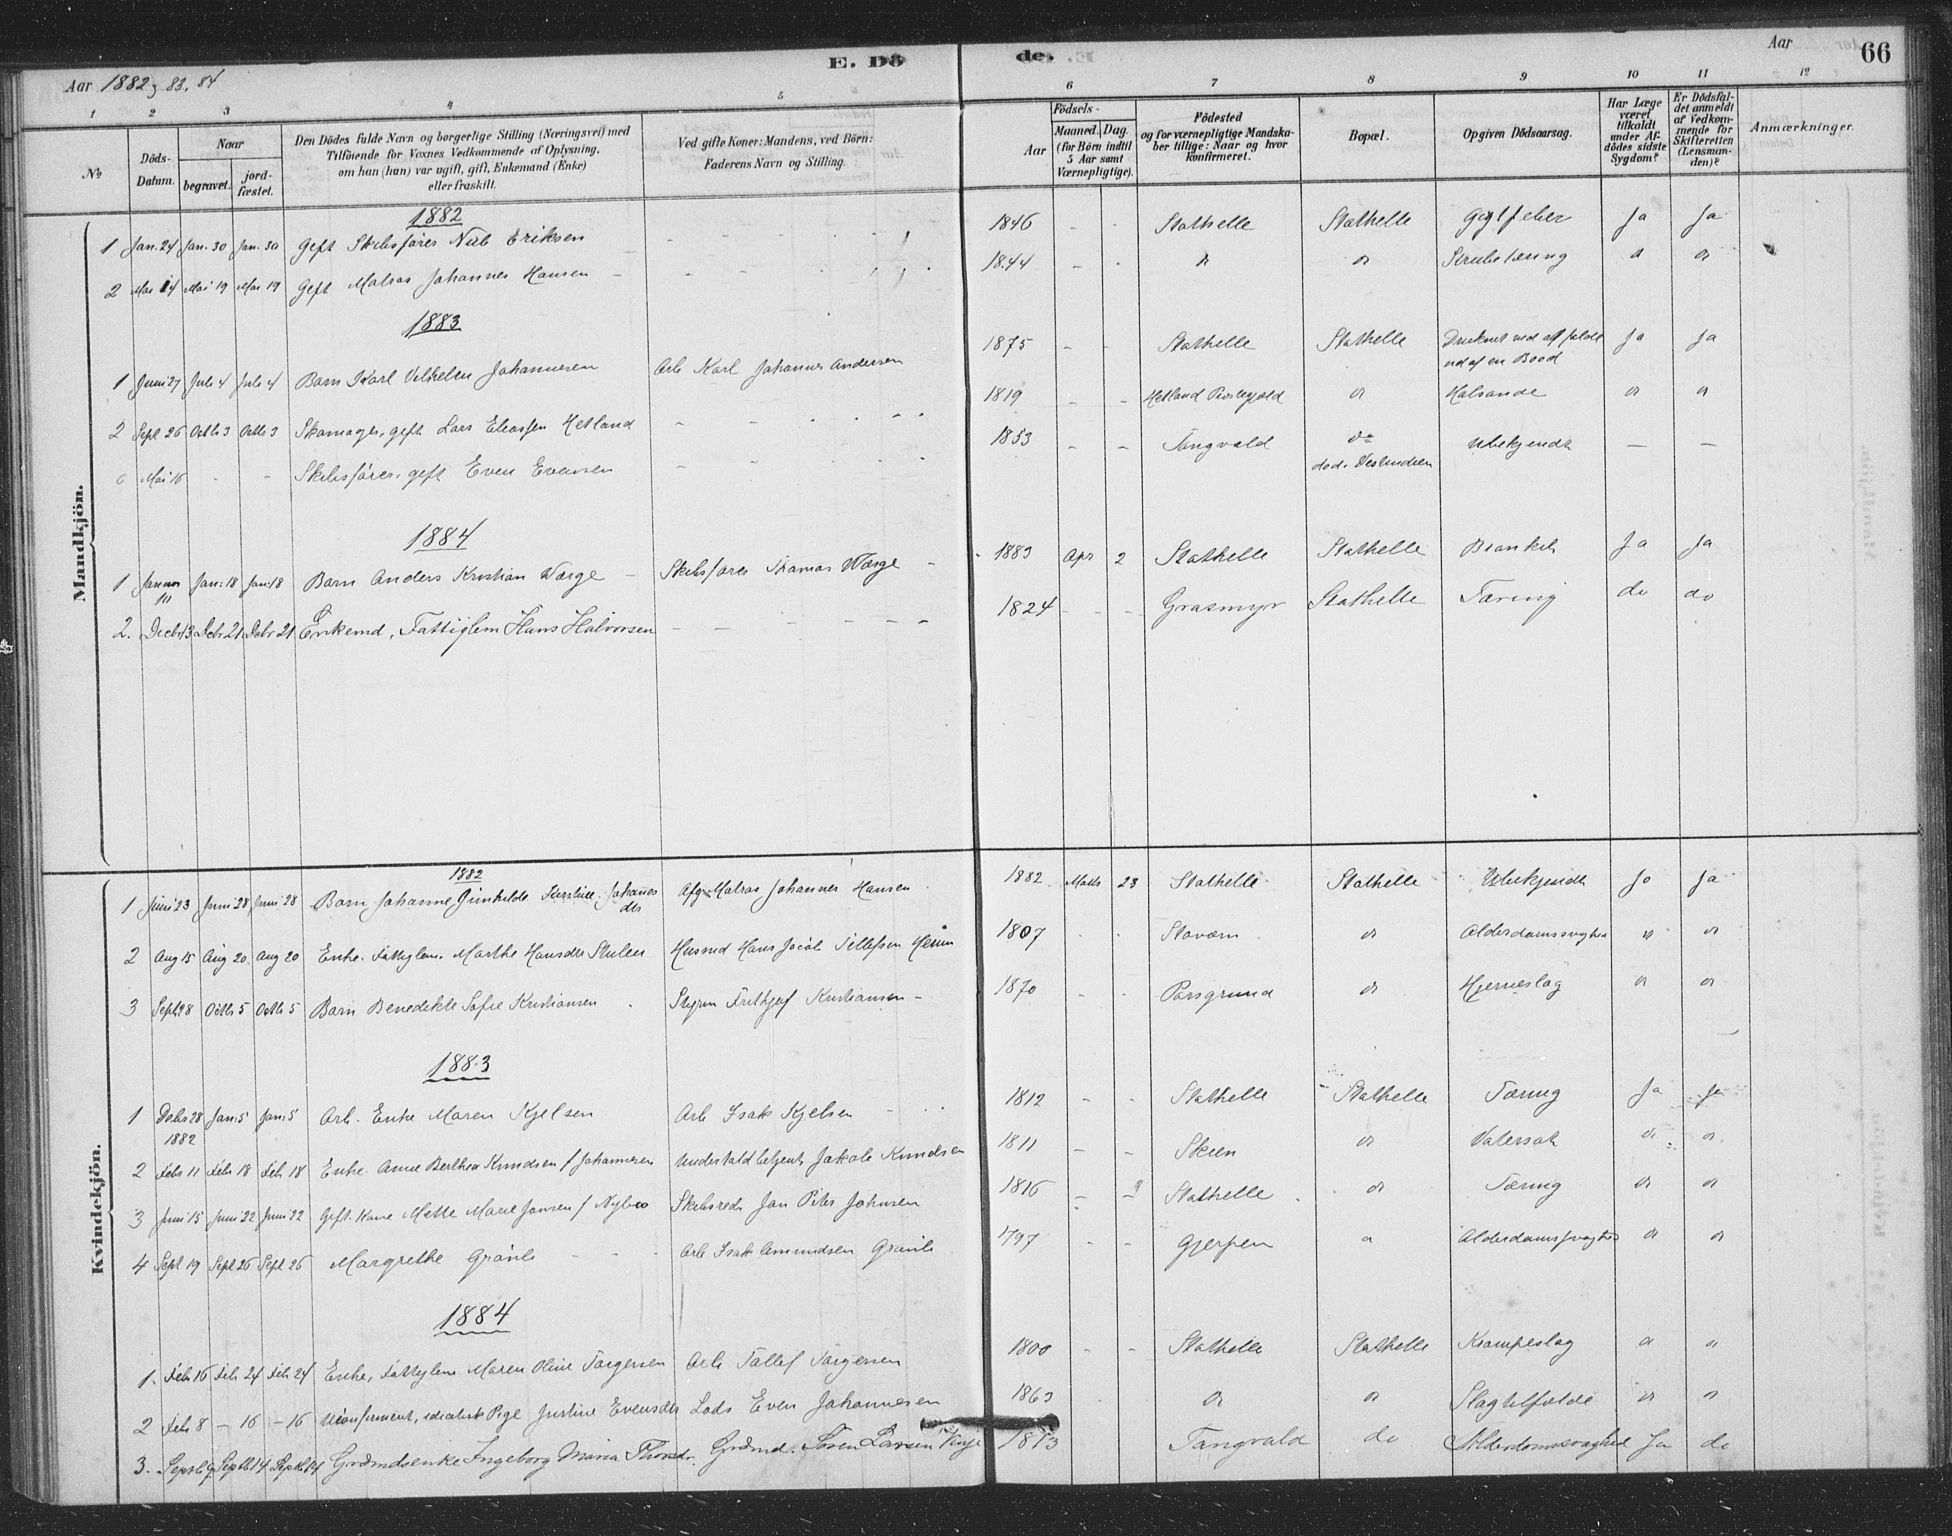 Aar 1882, 83, 84 E. Dö de. Aar 66
1 2 3 4 5 6 7 8 9 10 11 12
No Döds-Datum. Naar begravet. jord-fæstet. Den Dödes fulde Navn og borgerlige Stilling (Næringsvei) med Tilföiende for Voxnes Vedkommende af Oplysning, om han (hun) var ugift, gift, Enkemand (Enke) eller fraskilt. Ved gifte Koner: Mandens, ved Börn: Faderens Navn og Stilling. Födsels- Aar Maaned. Dag. (for Börn indtil 5 Aar samt Værnepligtige). Födested og for værnepligtige Mandskaber tillige: Naar og hvor konfirmeret. Bopæl. Opgiven Dödsaarsag. Har Læge været tilkaldt under Afdödes sidste Sygdom? Er Dödsfaldet anmeldt af Vedkommende for Skifteretten (Lensmanden)? Anmærkninger.
Mandkjön.
1882
1 Jan. 24 Jan. 30 Jan. 30 Gift Skibsfører Nils Eriksen 1846 - - Stathelle Stathelle Gigtfeber Ja Ja
2 Mai 14 Mai 19 Mai 19 Gift Matros Johannes Hansen 1844 - - Strubetæring
1883
1 Juni 27 Juli 4 Juli 4 Barn Karl Vilhelm Johannesen Arb Karl Johannes Andersen 1875 - - Stathelle Stathelle Druknet ved at falde ud af en Baad Ja Ja
2 Sept 26 Octb 3 Octb 3 Skomager, gift Lars Eliassen Hetland 1819 - - Hetland Præstegjeld Halsonde
Mai 16 - - Skibsfører, gift Even Evensen 1853 - - Tangvald do død i Vestindien Ubekjendt - -
1884
1 Januar 10 Jan: 18 Jan: 18 Barn Anders Kristian Wærge Skibsfører Tomas Wærge 1883 Apr 2 Stathelle Stathelle Bronkit Ja Ja
2. Decbr 13 Debr 21 Debr 21 Enkemd, Fattiglem Hans Halvorsen 1824 - - Grasmyr Stathelle Tæring do do
Kvindekjön.
1882
1 Juni 23 Juni 28 Juni 28 Barn Johanne Gunhilde Johannesdtr Afg Matros Johannes Hansen 1882 Marts 23 Stathelle Stathelle Ubekjendt Ja Ja
2 Aug 15 Aug 20 Aug 20 Enke. Fattiglem. Marthe Hansdtr Stulen Husmd Hans Jacob Tellefsen 1807 - - Stavern Alderdomssvaghed
3 Sept 28 Octb 5 Octb 5 Barn Benedikte Sofie Kristiansen Styrm Frithjof Kristiansen 1870 - - Porsgrund Hjerneslag
1883
1 Debr 28 1882 Jan: 5 Jan: 5 Arb. Enke Maren Kjelsen Arb Isak Kjelsen 1812 - - Stathelle Stathelle Tæring Ja Ja
2 Feb 11 Feb 18 Feb 18 Enke. Anne Berthea Knudsen f Johannesen Undertoldbetjent Jakob Knudsen 1811 - - Skien Vatersot
3 Juni 15 Juni 22 Juni 22 Gift. Kone Mette Marie Jansen f Nybro Skibsred Jan Peter Johnsen 1816 - Stathelle Tæring
4 Sept 19 Sept 26 Sept 26 Margrethe Grønli Arb Isak Amundsen Grønli 1797 - - Gjerpen Alderdomssvaghed
1884
1. Feb 16 Feb 24 Feb 24 Enke, Fattiglem Maren Oline Torgersen Arb Tollef Torgersen 1800 - - Stathelle Stathelle Krampeslag
2 Feb 8 - 16 - 16 Ukonfirmert, idiotisk Pige Justine Evensdtr Lods Even Johannesen 1863 Slagtilfælde
3. Septb 9 Septb 14 Septb 14 Grdmdsenke Ingeborg Maria Thorsdr. Grdmd. Søren Larsen Vinje 1813 Tangvald do Alderdomssvaghed Ja do